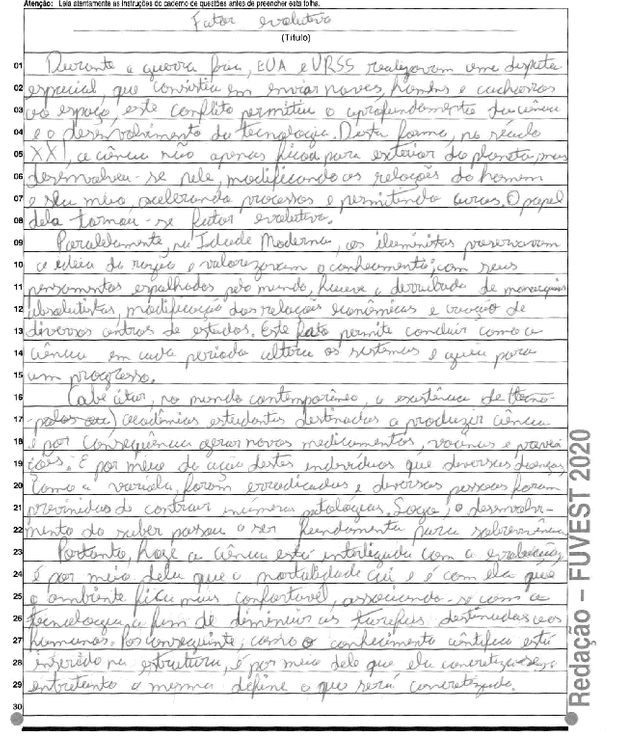 Atenção: Leia atentamente as instruções do caderno de questões antes de preencher esta folha.
Fator evolutivo
(Título)
01 Durante a guerra fria, EUA e URSS realizavam uma disputa
02 espacial, que consistia em enviar naves, homens e cachorros
03 ao espaço, este conflito permitiu o aprofundamento da ciência
04 e o desenvolvimento da tecnologia. Desta forma, no século
05 XXI, a ciência não apenas ficou para exterior do planeta, mas
06 desenvolveu-se nele, modificando as relações do homem
07 e seu meio, acelerando processos e permitindo curas. O papel
08 dela tornou-se fator evolutivo.
09 Paralelamente, na Idade Moderna, os iluministas preservavam
10 a ideia da razão e valorizavam o conhecimento; com seus
11 pensamentos espalhados pelo mundo, houve a derrubada de monarquias
12 absolutistas, modificação das relações econômicas e criação de
13 diversos centros de estudos. Este fato permite concluir como a
14 ciência em cada período altera os sistemas e guia para
15 um progresso.
16 Cabe citar, no mundo contemporâneo, a existência de
17 academias estudantes destinados a produzir ciência
18 e por consequência gerar novos medicamentos, vacinas e
19 É por meio da ação destes indivíduos que diversas doenças,
20 como a varíola, foram erradicadas e diversas pessoas foram
21 prevenidas de contrair inúmeras patologias. Logo, o desenvolvi-
22 mento do saber passou a ser fundamental para sobrevivência
23 Portanto, hoje a ciência está interligada com a evolução,
24 é por meio dela que a mortalidade cai e é com ela que
25 o ambiente fica mais confortável, associando-se com a
26 tecnologia a fim de diminuir as tarefas destinadas aos
27 humanos. Por conseguinte, como o conhecimento científico está
28 inserido na estrutura, é por meio dele que ela concretiza-se,
29 entretanto a mesma define o que será concretizado.
30
Redação – FUVEST 2020